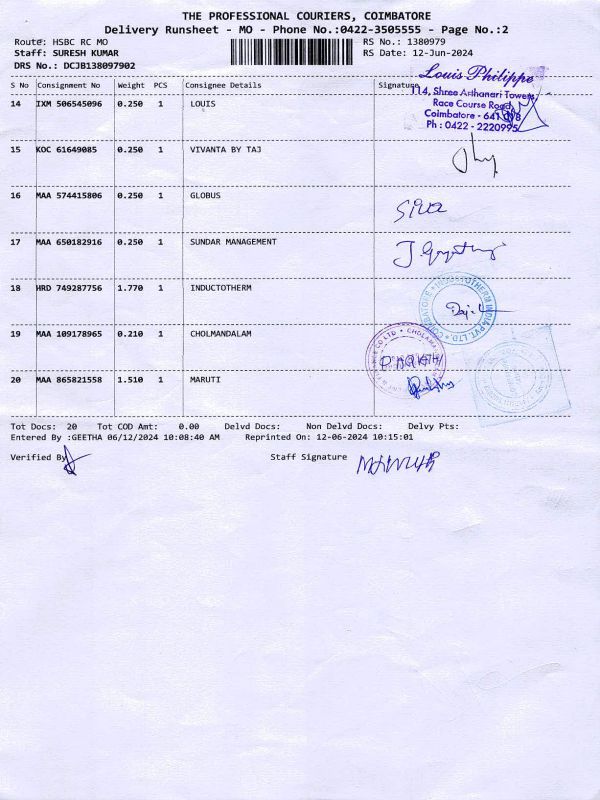 THE PROFESSIONAL COURIERS, COIMBATORE
Delivery Runsheet - MO - Phone No.:0422-3505555 - Page No.:2
Route: HSBC RC MO RS No.: 1380979
Staff: SURESH KUMAR RS Date: 12-Jun-2024
DRS No.: DCJB138097902
S No Consignment No Weight PCS Consignee Details Signature
Louis Philippe
114, Shree Arthanari Towers,
Race Course Road
Coimbatore - 641 018
Ph : 0422 - 2220995
14 IXM 506545096 0.250 1 LOUIS
15 KOC 61649085 0.250 1 VIVANTA BY TAJ
16 MAA 574415806 0.250 1 GLOBUS Siva
17 MAA 650182916 0.250 1 SUNDAR MANAGEMENT
18 HRD 749287756 1.770 1 INDUCTOTHERM
INDUCTOTHERM INDIA PVT. LTD. COIMBATORE
19 MAA 109178965 0.210 1 CHOLMANDALAM
20 MAA 865821558 1.510 1 MARUTI
Tot Docs: 20 Tot COD Amt: 0.00 Delvd Docs: Non Delvd Docs: Delvy Pts:
Entered By :GEETHA 06/12/2024 10:08:40 AM Reprinted On: 12-06-2024 10:15:01
Verified By Staff Signature